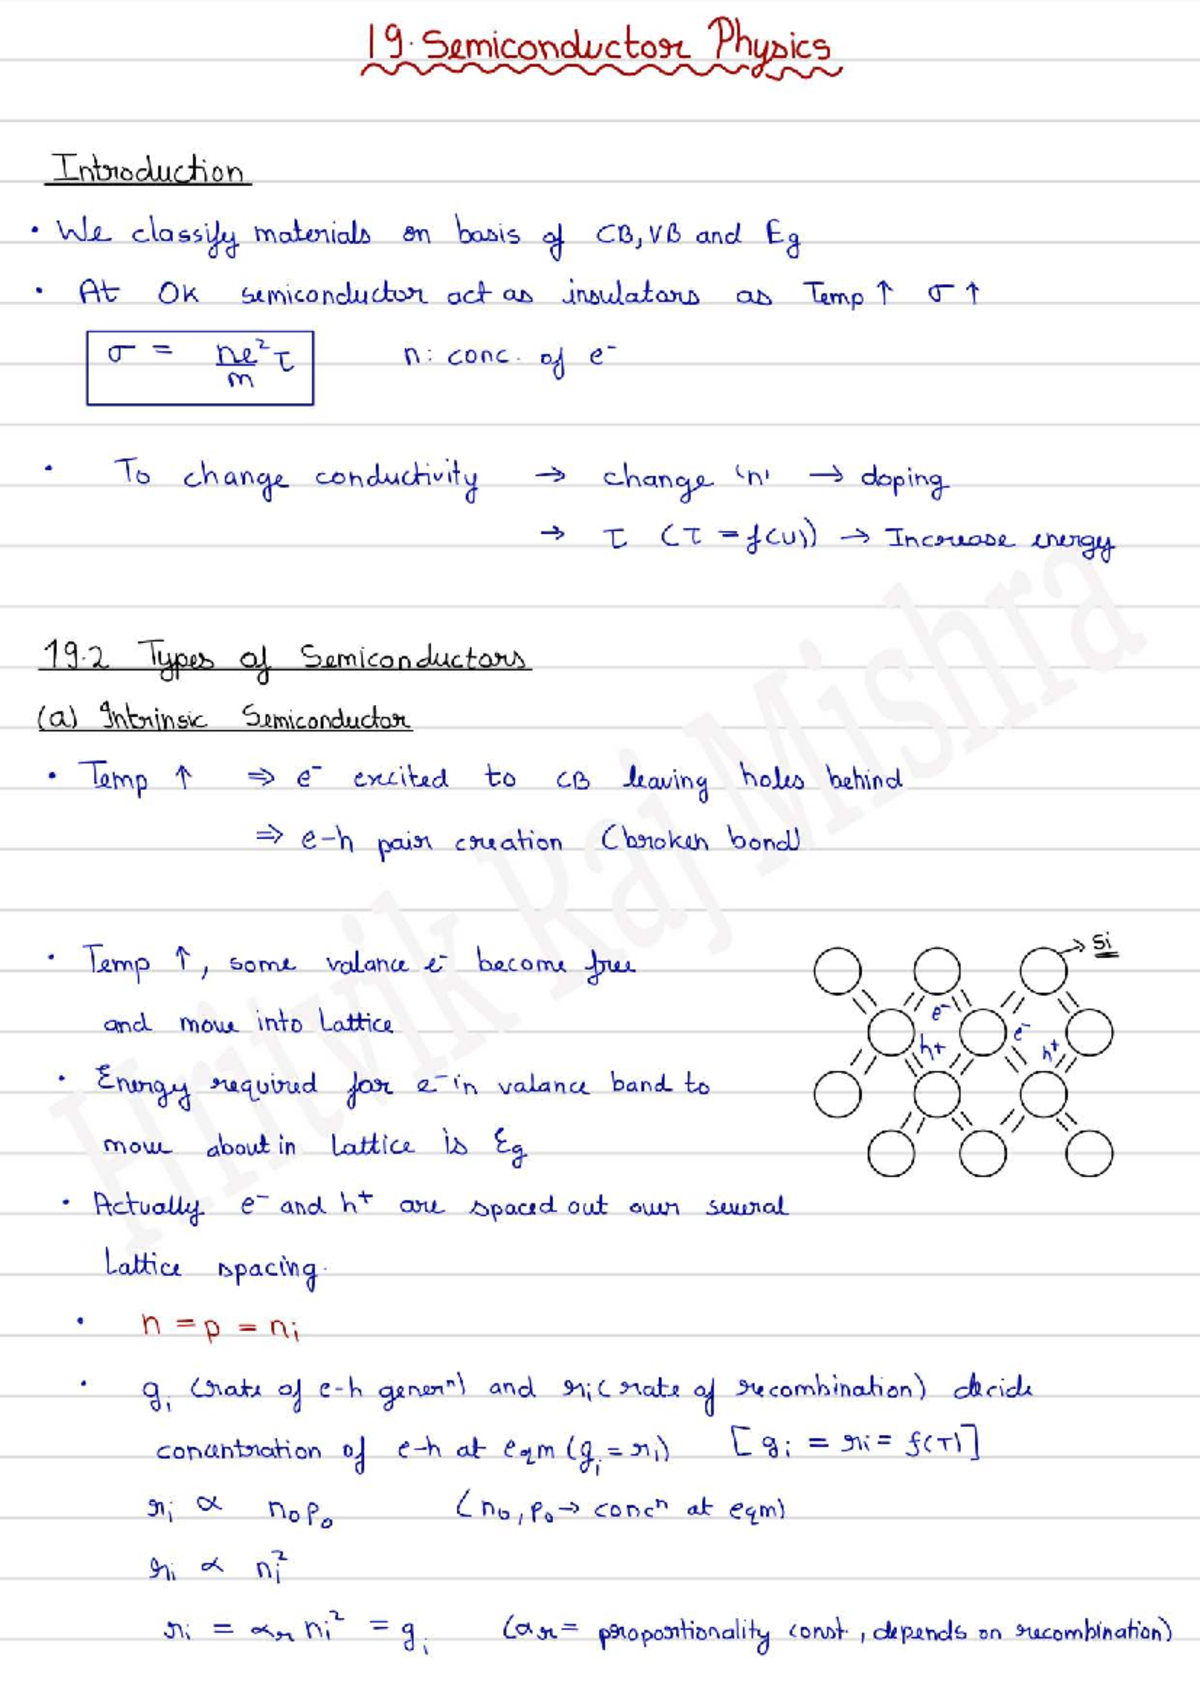 19. Semiconductor Physics
Introduction
• We classify materials on basis of CB, VB and Eg
• At 0K semiconductor act as insulators as Temp ↑ σ ↑
σ = ne²τ/m n: conc. of e⁻
• To change conductivity → change 'n' → doping
→ τ (τ = f(u)) → Increase energy
19.2 Types of Semiconductors
(a) Intrinsic Semiconductor
• Temp ↑ ⇒ e⁻ excited to CB leaving holes behind
⇒ e-h pair creation (broken bond)
• Temp ↑, some valance e⁻ become free
and move into Lattice
• Energy required for e⁻ in valance band to
move about in Lattice is Eg
• Actually e⁻ and h⁺ are spaced out over several
Lattice spacing.
→ Si
e⁻ e⁻
h+ h⁺
• n = p = ni
• gi (rate of e-h generⁿ) and ri (rate of recombination) decide
concentration of e-h at eqm (gi = ri) [gi = ri = f(T)]
ri ∝ n₀p₀ (n₀, p₀ → concⁿ at eqm)
ri ∝ ni²
ri = αr ni² = gi (ar = proportionality const., depends on recombination)
Hritvik Raj Mishra